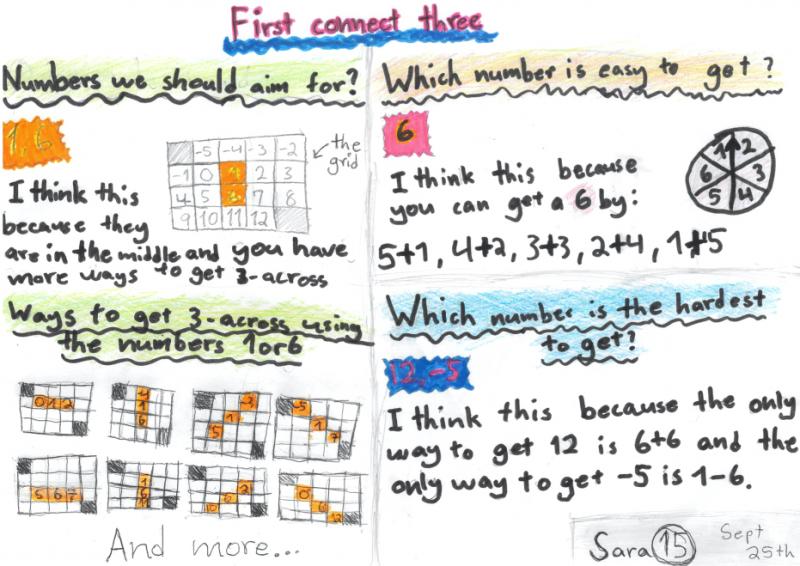 First connect three
Numbers we should aim for?
1,6
-5 -4 -3 -2
-1 0 1 2 3
4 5 6 7 8
9 10 11 12
the
grid
I think this
because they
are in the middle and you have
more ways to get 3-across
Which number is easy to get?
6
I think this because
you can get a 6 by:
1 2 3 4 5 6
5+1, 4+2, 3+3, 2+4, 1+5
Ways to get 3-across using
the numbers 1 or 6
0 1 2
-4
1
6
-3
1
5
-5
1
7
5 6 7
1
6
11
2
6
10
0
6
12
And more...
Which number is the hardest
to get?
12, -5
I think this because the only
way to get 12 is 6+6 and the
only way to get -5 is 1-6.
Sara 15
Sept
25th